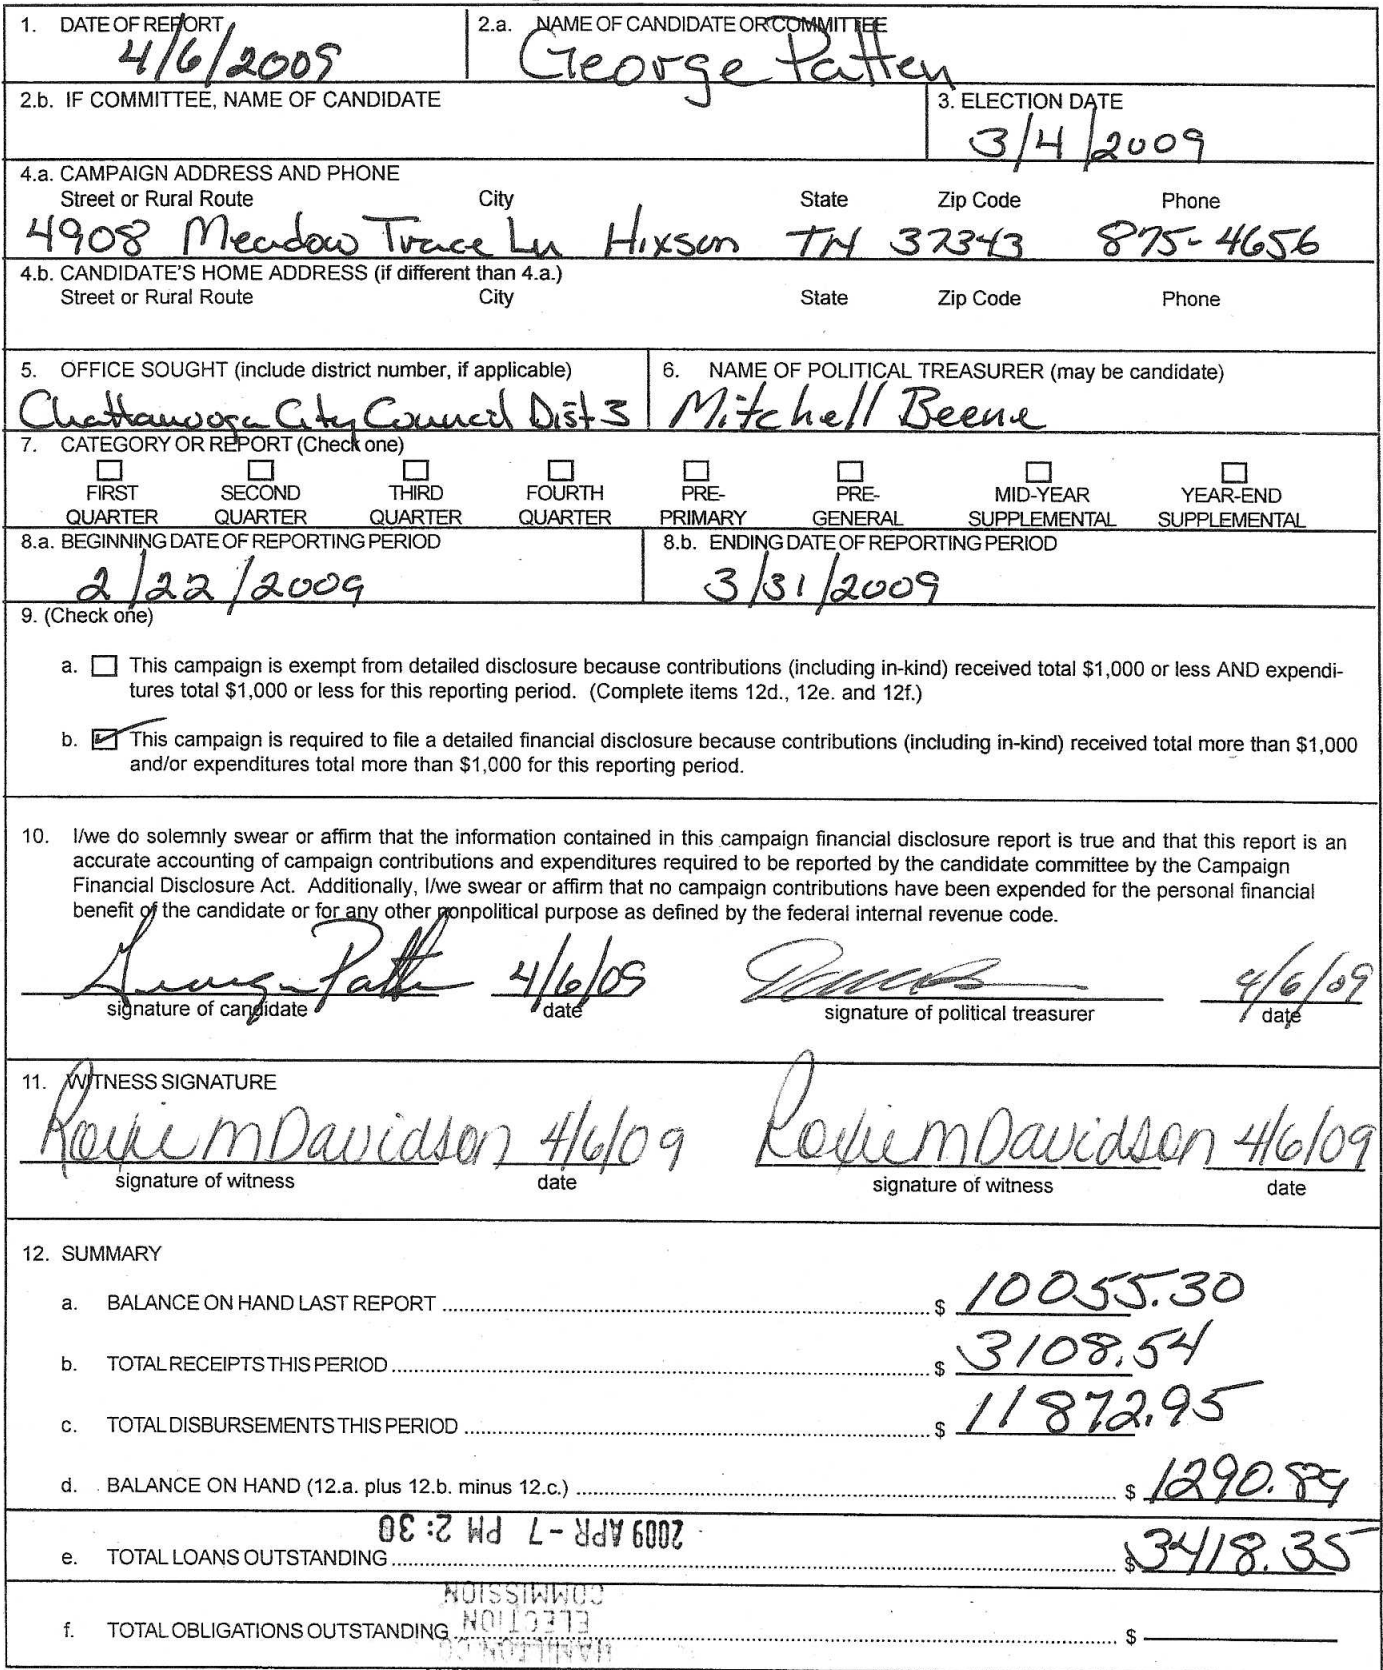 1. DATE OF REPORT 2.a. NAME OF CANDIDATE OR COMMITTEE
4/6/2009 George Patten
2.b. IF COMMITTEE, NAME OF CANDIDATE 3. ELECTION DATE
3/4/2009
4.a. CAMPAIGN ADDRESS AND PHONE
Street or Rural Route City State Zip Code Phone
4908 Meadow Trace Ln Hixson TN 37343 875-4656
4.b. CANDIDATE'S HOME ADDRESS (if different than 4.a.)
Street or Rural Route City State Zip Code Phone
5. OFFICE SOUGHT (include district number, if applicable) 6. NAME OF POLITICAL TREASURER (may be candidate)
Chattanooga City Council Dist 3 Mitchell Beene
7. CATEGORY OR REPORT (Check one)
FIRST SECOND THIRD FOURTH PRE- PRE- MID-YEAR YEAR-END
QUARTER QUARTER QUARTER QUARTER PRIMARY GENERAL SUPPLEMENTAL SUPPLEMENTAL
8.a. BEGINNING DATE OF REPORTING PERIOD 8.b. ENDING DATE OF REPORTING PERIOD
2/22/2009 3/31/2009
9. (Check one)
a. This campaign is exempt from detailed disclosure because contributions (including in-kind) received total $1,000 or less AND expendi-
tures total $1,000 or less for this reporting period. (Complete items 12d., 12e. and 12f.)
b. This campaign is required to file a detailed financial disclosure because contributions (including in-kind) received total more than $1,000
and/or expenditures total more than $1,000 for this reporting period.
10. I/we do solemnly swear or affirm that the information contained in this campaign financial disclosure report is true and that this report is an
accurate accounting of campaign contributions and expenditures required to be reported by the candidate committee by the Campaign
Financial Disclosure Act. Additionally, I/we swear or affirm that no campaign contributions have been expended for the personal financial
benefit of the candidate or for any other nonpolitical purpose as defined by the federal internal revenue code.
George Patten 4/6/09 4/6/09
signature of candidate date signature of political treasurer date
11. WITNESS SIGNATURE
Roxie M Davidson 4/6/09 Roxie M Davidson 4/6/09
signature of witness date signature of witness date
12. SUMMARY
a. BALANCE ON HAND LAST REPORT $ 10055.30
b. TOTAL RECEIPTS THIS PERIOD $ 3108.54
c. TOTAL DISBURSEMENTS THIS PERIOD $ 11872.95
d. BALANCE ON HAND (12.a. plus 12.b. minus 12.c.) $ 1290.89
2009 APR -7 PM 2:30
e. TOTAL LOANS OUTSTANDING $ 3418.35
COMMISSION
ELECTION
f. TOTAL OBLIGATIONS OUTSTANDING $
HAMILTON CO